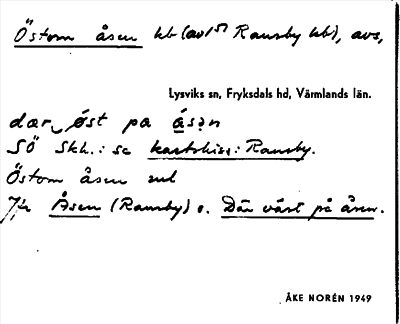 Östom åsen hb (av 1⁵¹ Ransby hb), avs,
Lysviks sn, Fryksdals hd, Värmlands län.
dar øst pa åsən
SÖ Skh.: se kartskiss: Ransby.
Östom åsen
Jfr Åsen (Ransby) o. Där väst på åsen.
ÅKE NORÉN 1949